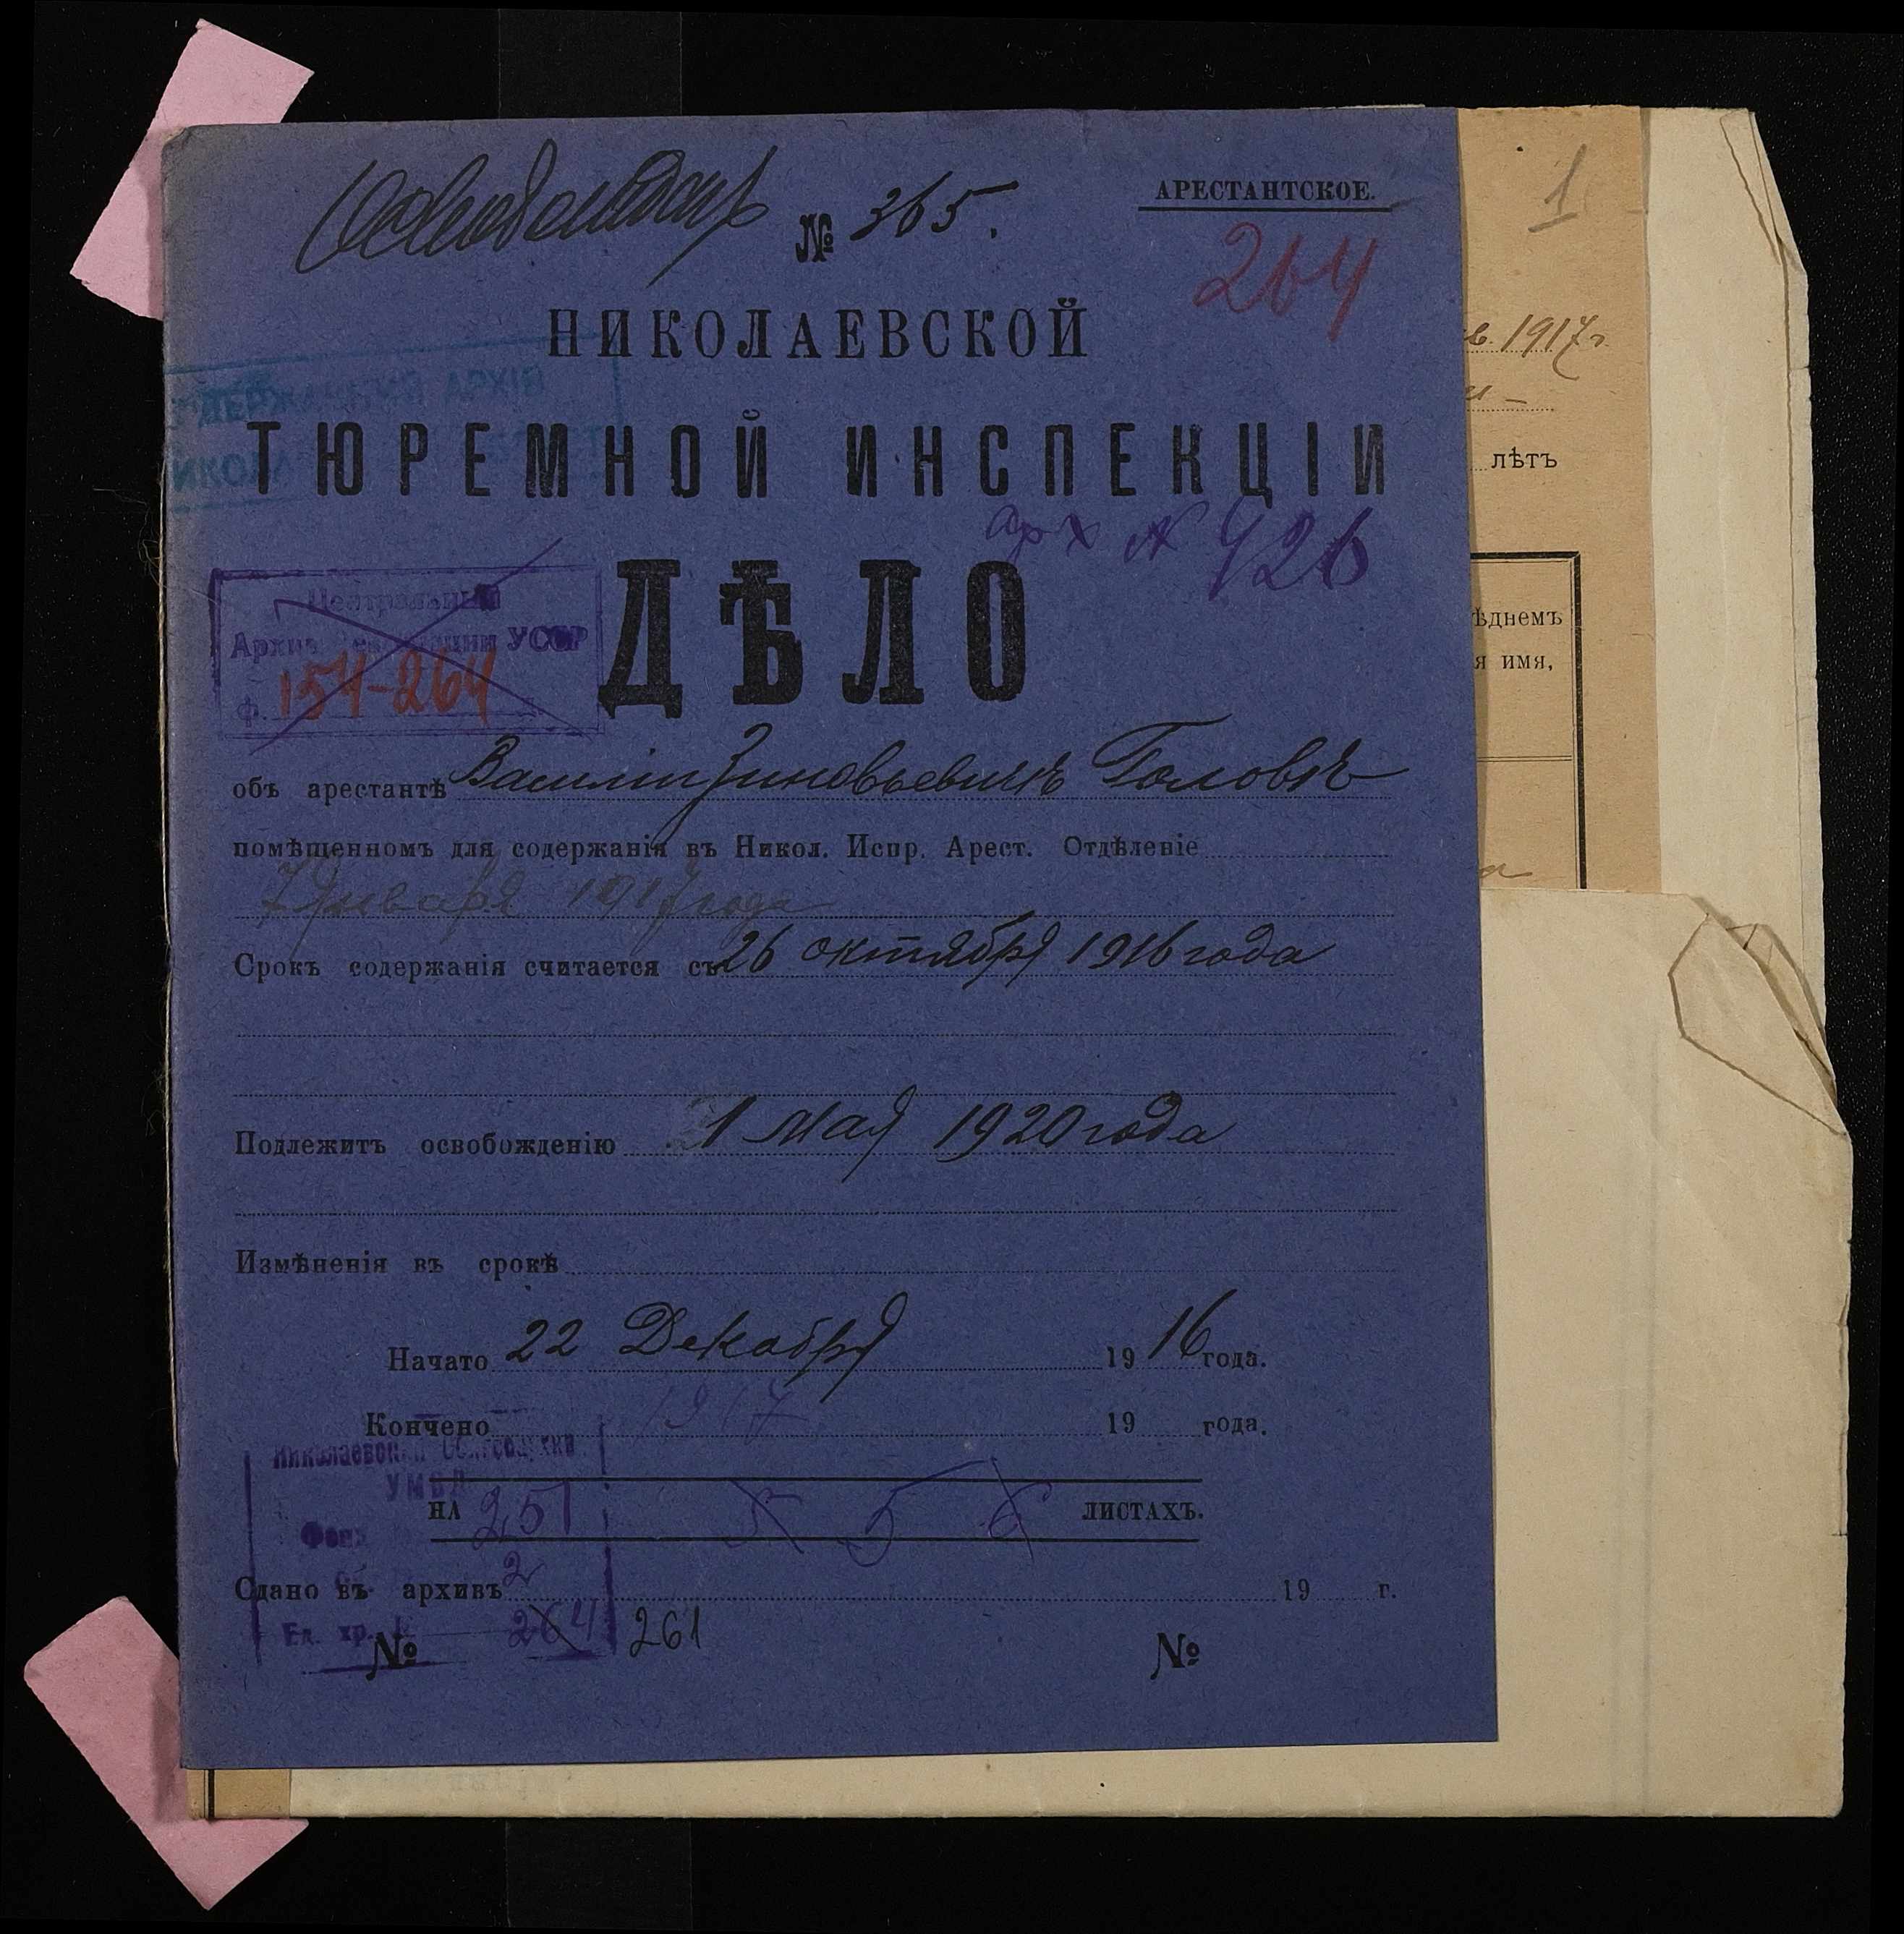 № 365.
АРЕСТАНТСКОЕ.
264
НИКОЛАЕВСКОЙ
ДЕРЖАВНИЙ АРХІВ
ТЮРЕМНОЙ ИНСПЕКЦІИ
арх № 926
ДѢЛО
Центральный
УССР
ф. 154-264
объ арестантѣ Василіи Зиновьевичѣ Головѣ
помѣщенномъ для содержанія въ Никол. Испр. Арест. Отдѣленіе
7 Января 1917 года
Срокъ содержанія считается съ 26 октября 1916 года
Подлежитъ освобожденію 1 мая 1920 года
Измѣненія въ срокѣ
Начато 22 Декабря 1916 года.
Кончено 1917 19 года.
УМВД
НА 5 ЛИСТАХЪ.
Фонд 251
Оп. 2
Сдано въ архивъ 19 г.
Ед. хр. 264 261
№ №
1
1917 г.
лѣтъ
ѣднемъ
я имя,